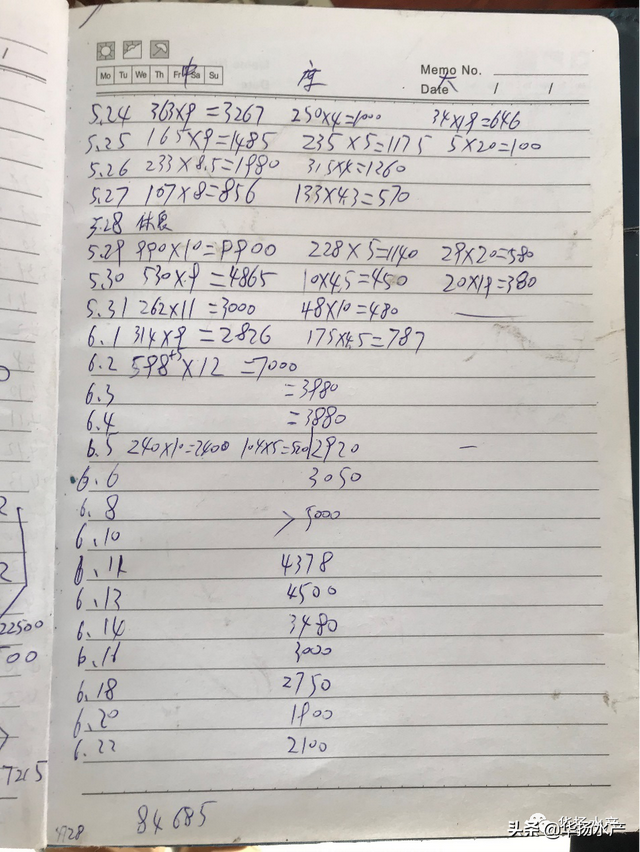 Mo Tu We Th Fr Sa Su
中
Memo No.
Date / /
大
5.24 363×9=3267 250×4=1000 34×19=646
5.25 165×9=1485 235×5=1175 5×20=100
5.26 233×8.5=1980 315×4=1260
5.27 107×8=856 133×4.3=570
5.28 休息
5.29 990×10=9900 228×5=1140 29×20=580
5.30 530×9=4865 10×4.5=450 20×19=380
5.31 262×11=3000 48×10=480 —
6.1 314×9=2826 175×4.5=787
6.2 598×12=7000
6.3 =3980
6.4 =3880
6.5 240×10=2400 104×5=520 2920 —
6.6 3050
6.8
>5000
6.10
6.11 4378
6.13 4500
6.14 3480
6.16 3000
6.18 2750
6.20 1900
6.22 2100
84685
22500
00
7215
头条@华扬水产
华扬水产